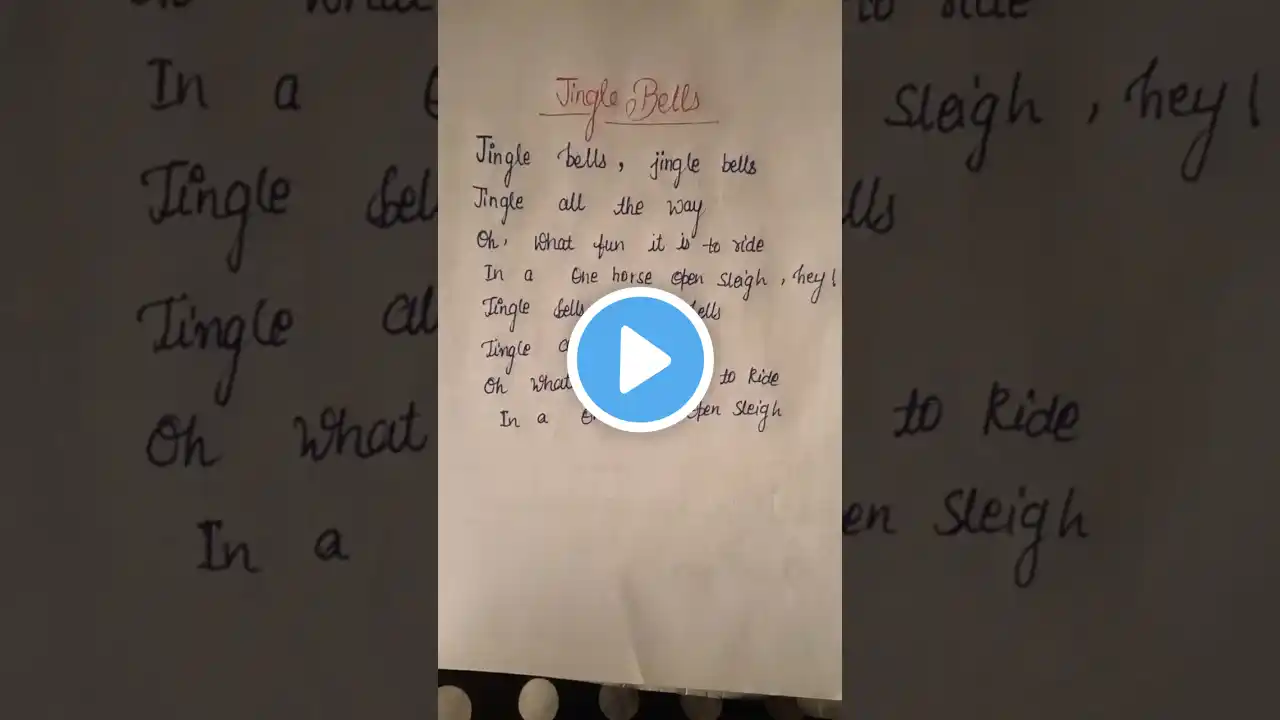 Jingle Bells
Jingle bells, jingle bells
Jingle all the way
Oh, what fun it is to ride
In a one horse open sleigh, hey!
Jingle bells bells
Jingle
Oh what to Ride
In a open sleigh